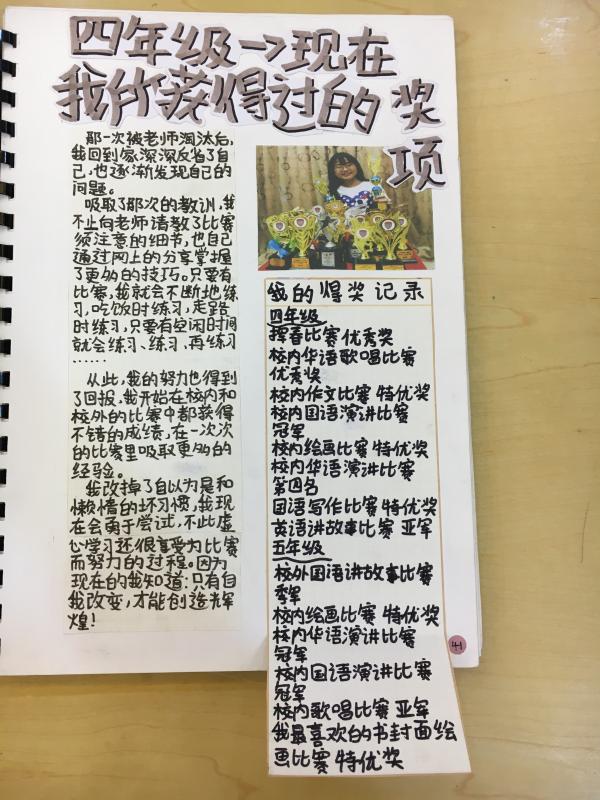 四年级→现在
我所获得过的奖项
那一次被老师淘汰后,
我回到家深深反省了自
己,也逐渐发现自己的
问题。
吸取了那次的教训,我
不止向老师请教了比赛
须注意的细节,也自己
通过网上的分享掌握
了更多的技巧。只要有
比赛,我就会不断地练
习,吃饭时练习,走路
时练习,只要有空闲时间
就会练习、练习、再练习
……
从此,我的努力也得到
了回报,我开始在校内和
校外的比赛中都获得
不错的成绩,在一次次
的比赛里吸取更多的
经验。
我改掉了自以为是和
懒惰的坏习惯,我现
在会勇于尝试,不止虚
心学习还很享受为比赛
而努力的过程。因为
现在的我知道:只有自
我改变,才能创造辉
煌!
我的得奖记录
四年级
挥春比赛 优秀奖
校内华语歌唱比赛
优秀奖
校内作文比赛 特优奖
校内国语演讲比赛
冠军
校内绘画比赛 特优奖
校内华语演讲比赛
第四名
国语写作比赛 特优奖
英语讲故事比赛 亚军
五年级
校外国语讲故事比赛
季军
校内绘画比赛 特优奖
校内华语演讲比赛
冠军
校内国语演讲比赛
冠军
校内歌唱比赛 亚军
我最喜欢的书封面绘
画比赛 特优奖
41